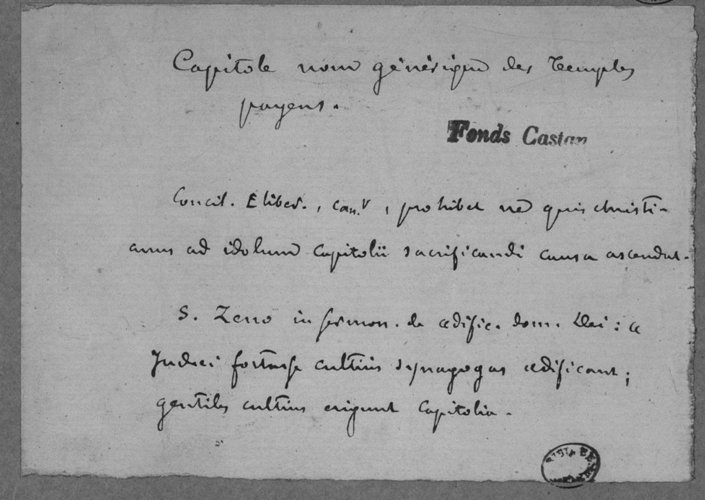 Capitole nom générique des Temples
payens.
Fonds Castan
Concil. Eliber., can. V, prohibet ne quis christi-
anus ad idolum Capitolii sacrificandi causa ascendat.
S. Zeno in sermon. de ædific. dom. Dei : "
Judæi fortasse cultius synagogas ædificant ;
gentiles cultius erigunt Capitolia.